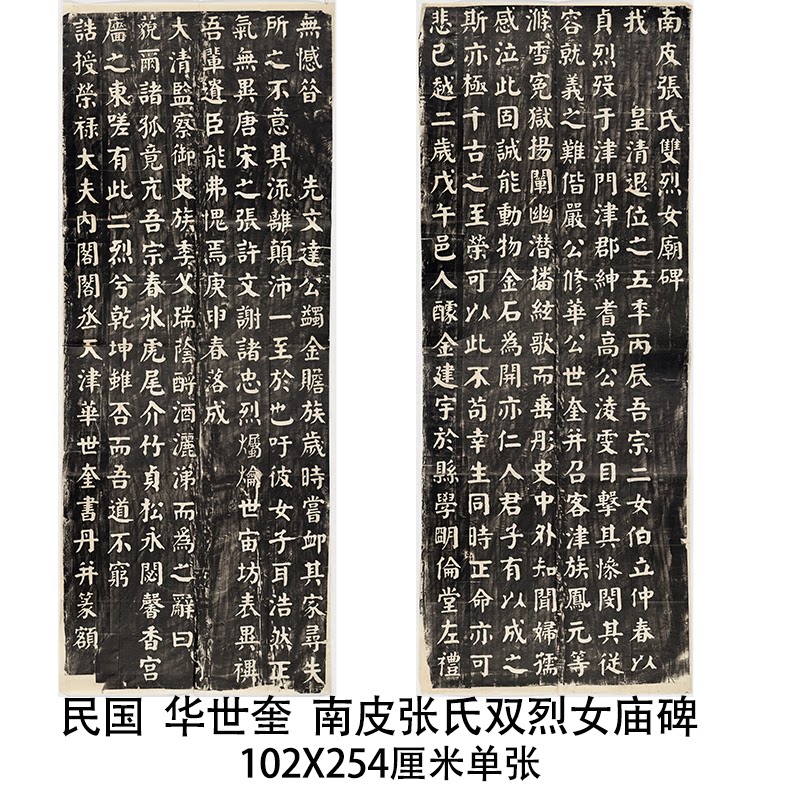 南皮張氏雙烈女廟碑
我 皇清退位之五年丙辰吾宗二女伯立仲春以
貞烈歿于津門津郡紳耆高公淩雯目擊其慘閔其從
容就義之難偕嚴公修華公世奎并召客津族鳳元等
滌雪冤獄揚闡幽潛播絃歌而垂彤史中外知聞婦孺
感泣此固誠能動物金石為開亦仁人君子有以成之
斯亦極千古之至榮可以此不苟幸生同時正命亦可
悲已越二歲戊午邑人醵金建宇於縣學明倫堂左禮
無憾 先文達公蠲金贍族歲時嘗卹其家尋失
所之不意其流離顛沛一至於也吁彼女子耳浩然正
氣無異唐宋之張許文謝諸忠烈爥爚世宙坊表異禩
吾輩遺臣能弗愧焉庚申春落成
大清監察御史族季父瑞蔭酹酒灑涕而為之辭曰
藐爾諸孤竟亢吾宗春氷虎尾介竹貞松永閟馨香宮
牆之東嗟有此二烈兮乾坤雖否而吾道不窮
誥授榮祿大夫內閣閣丞天津華世奎書丹并篆額
民国 华世奎 南皮张氏双烈女庙碑
102X254厘米单张